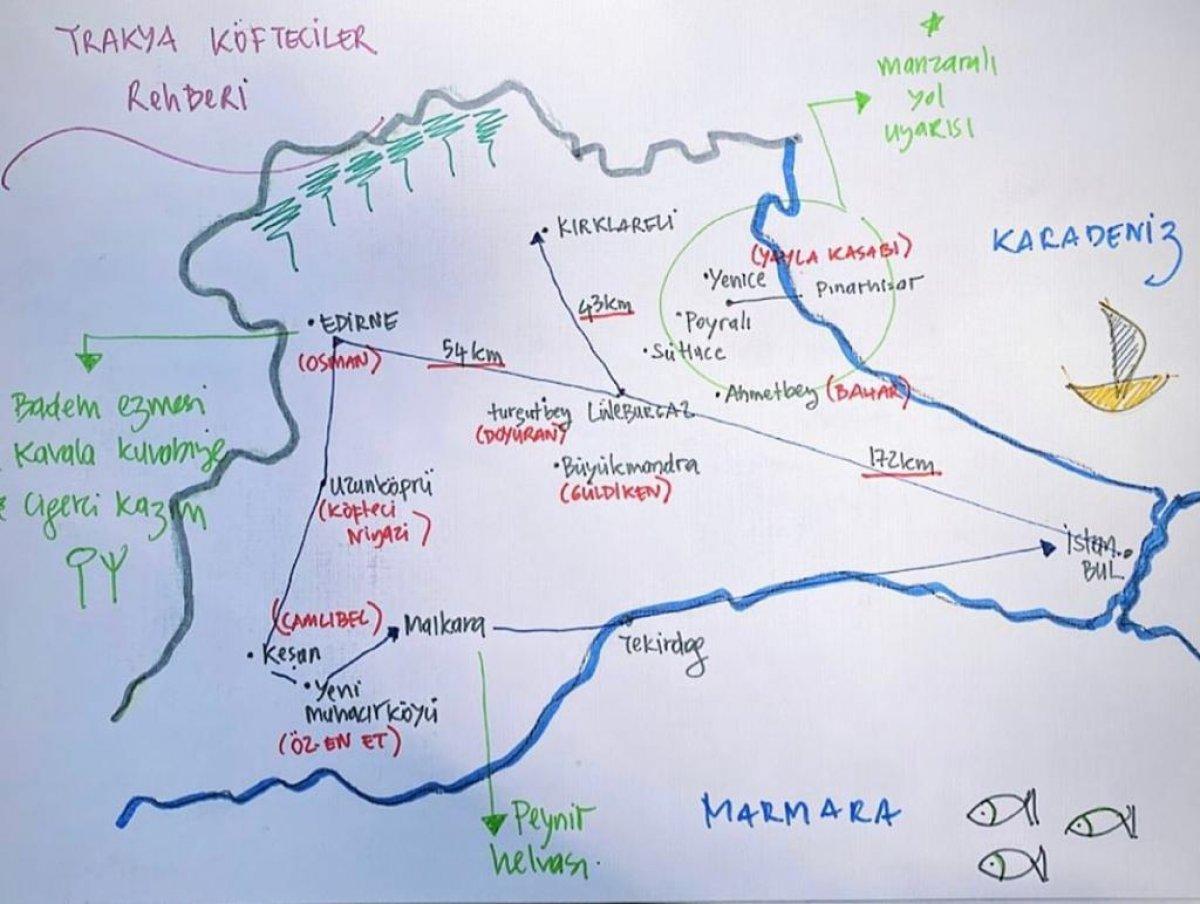 TRAKYA KÖFTECİLER
Rehberi
*
manzaralı
yol
uyarısı
KARADENİZ
KIRKLARELİ
43km
(YAYLA KASABI)
Yenice
Pınarhisar
Poyralı
Sütlüce
Ahmetbey (BAHAR)
EDİRNE
(OSMAN)
54km
turgutbey
(DOYURAN)
LÜLEBURGAZ
Büyükmandra
(GÜLDİKEN)
172km
İstan
BUL
Badem ezmesi
Kavala kurabiye
ciğerci kazım
Uzunköprü
(Köfteci
Niyazi)
(ÇAMLIBEL)
Keşan
Malkara
Tekirdağ
Yeni
Muhacırköyü
(ÖZ-EN ET)
Peynir
helvası.
MARMARA